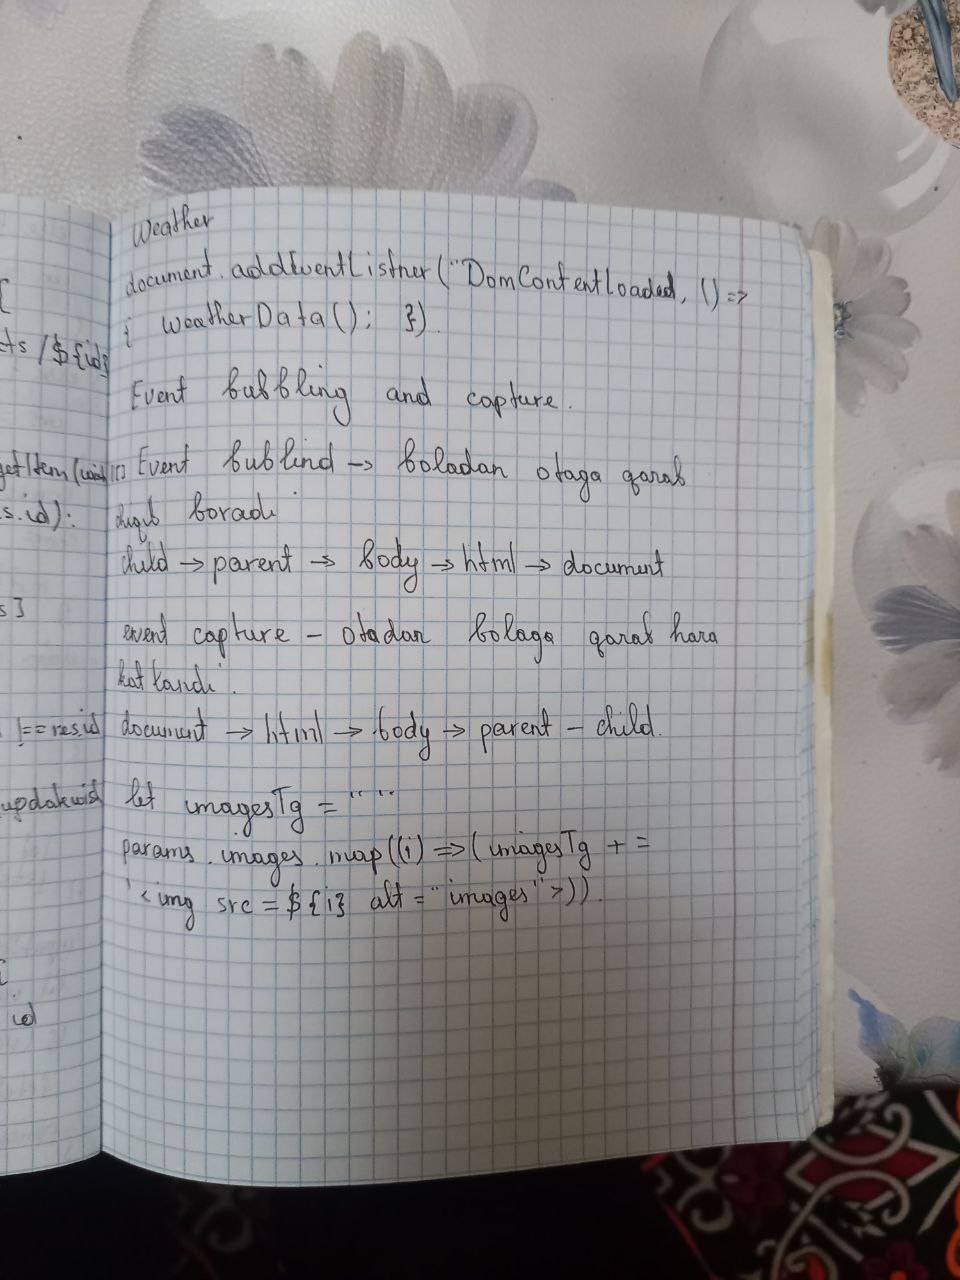 Weather
document.addEventListner("DomContentLoaded, () =>
{ weatherData(); })
Event bubbling and capture.
Event bublind -> boladan otaga qarab
chiqib boradi
child -> parent -> body -> html -> document
event capture - otadan bolaga qarab hara
katlandi.
document -> html -> body -> parent - child.
let imagesTg = " "
params.images.map((i) => (imagesTg + =
'<img src = ${i} alt = "images">)).
{
cts/${id}
getItem(
s.id):
s]
!==res.id
{
id